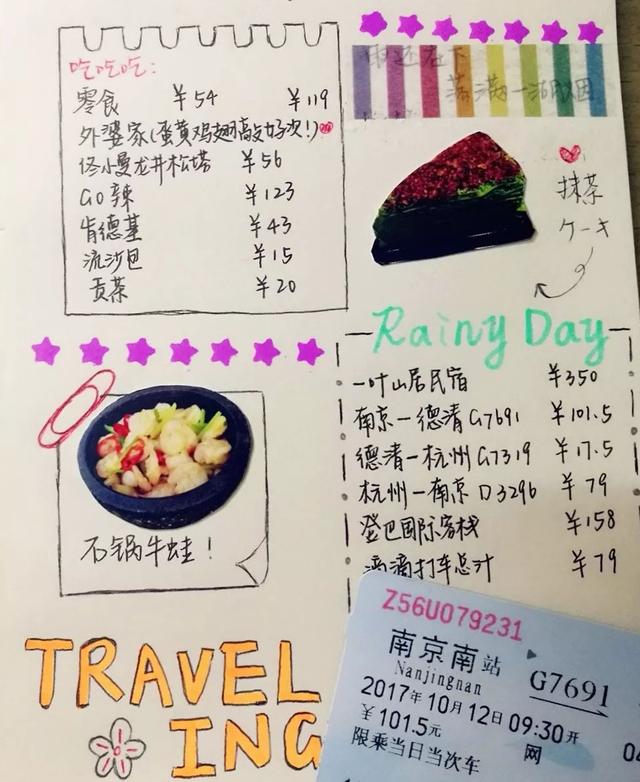 吃吃吃:
零食 ¥54 ¥119
外婆家(蛋黄鸡翅敲好次!)
佟小曼龙井松塔 ¥56
GO辣 ¥123
肯德基 ¥43
流沙包 ¥15
贡茶 ¥20
落满一湖烟
抹茶
ケーキ
Rainy Day
一叶山居民宿 ¥350
南京一德清G7691 ¥101.5
德清一杭州G7319 ¥17.5
杭州一南京D3296 ¥79
登巴国际客栈 ¥158
滴滴打车总计 ¥79
石锅牛蛙!
TRAVEL
ING
Z56U079231
南京南站
Nanjingnan
G7691
2017年10月12日09:30开
¥101.5元
网
限乘当日当次车